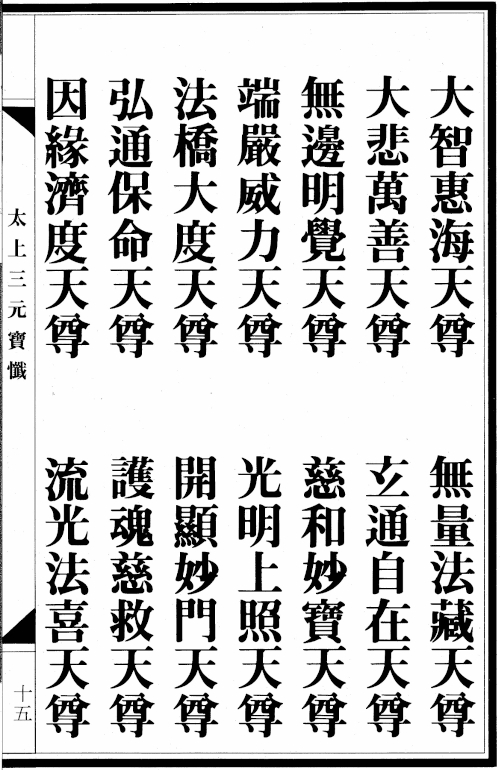 大智惠海天尊　無量法藏天尊
大悲萬善天尊　玄通自在天尊
無邊明覺天尊　慈和妙寶天尊
端嚴威力天尊　光明上照天尊
法橋大度天尊　開顯妙門天尊
弘通保命天尊　護魂慈救天尊
因緣濟度天尊　流光法喜天尊
太上三元寶懺
十五